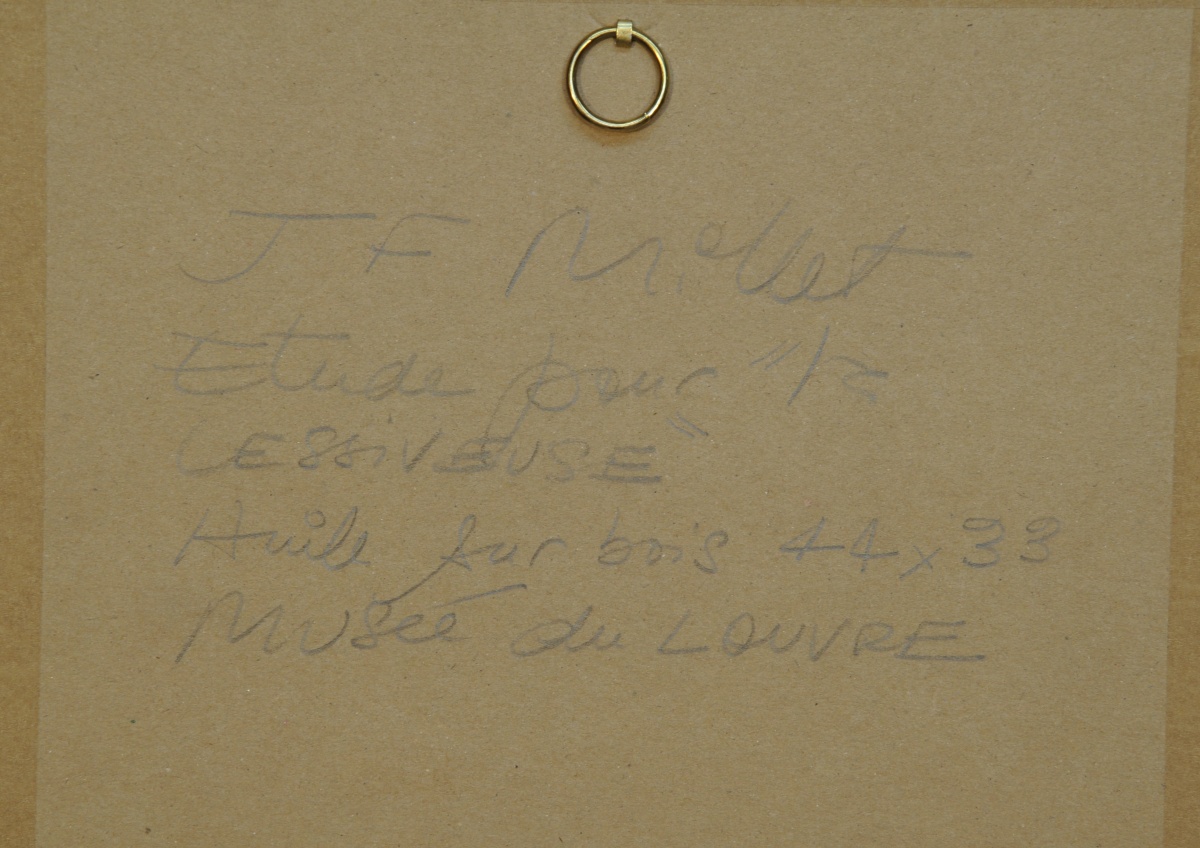 J F Millet
Etude pour "la
LESSIVEUSE"
Huile sur bois 44x33
Musée du LOUVRE